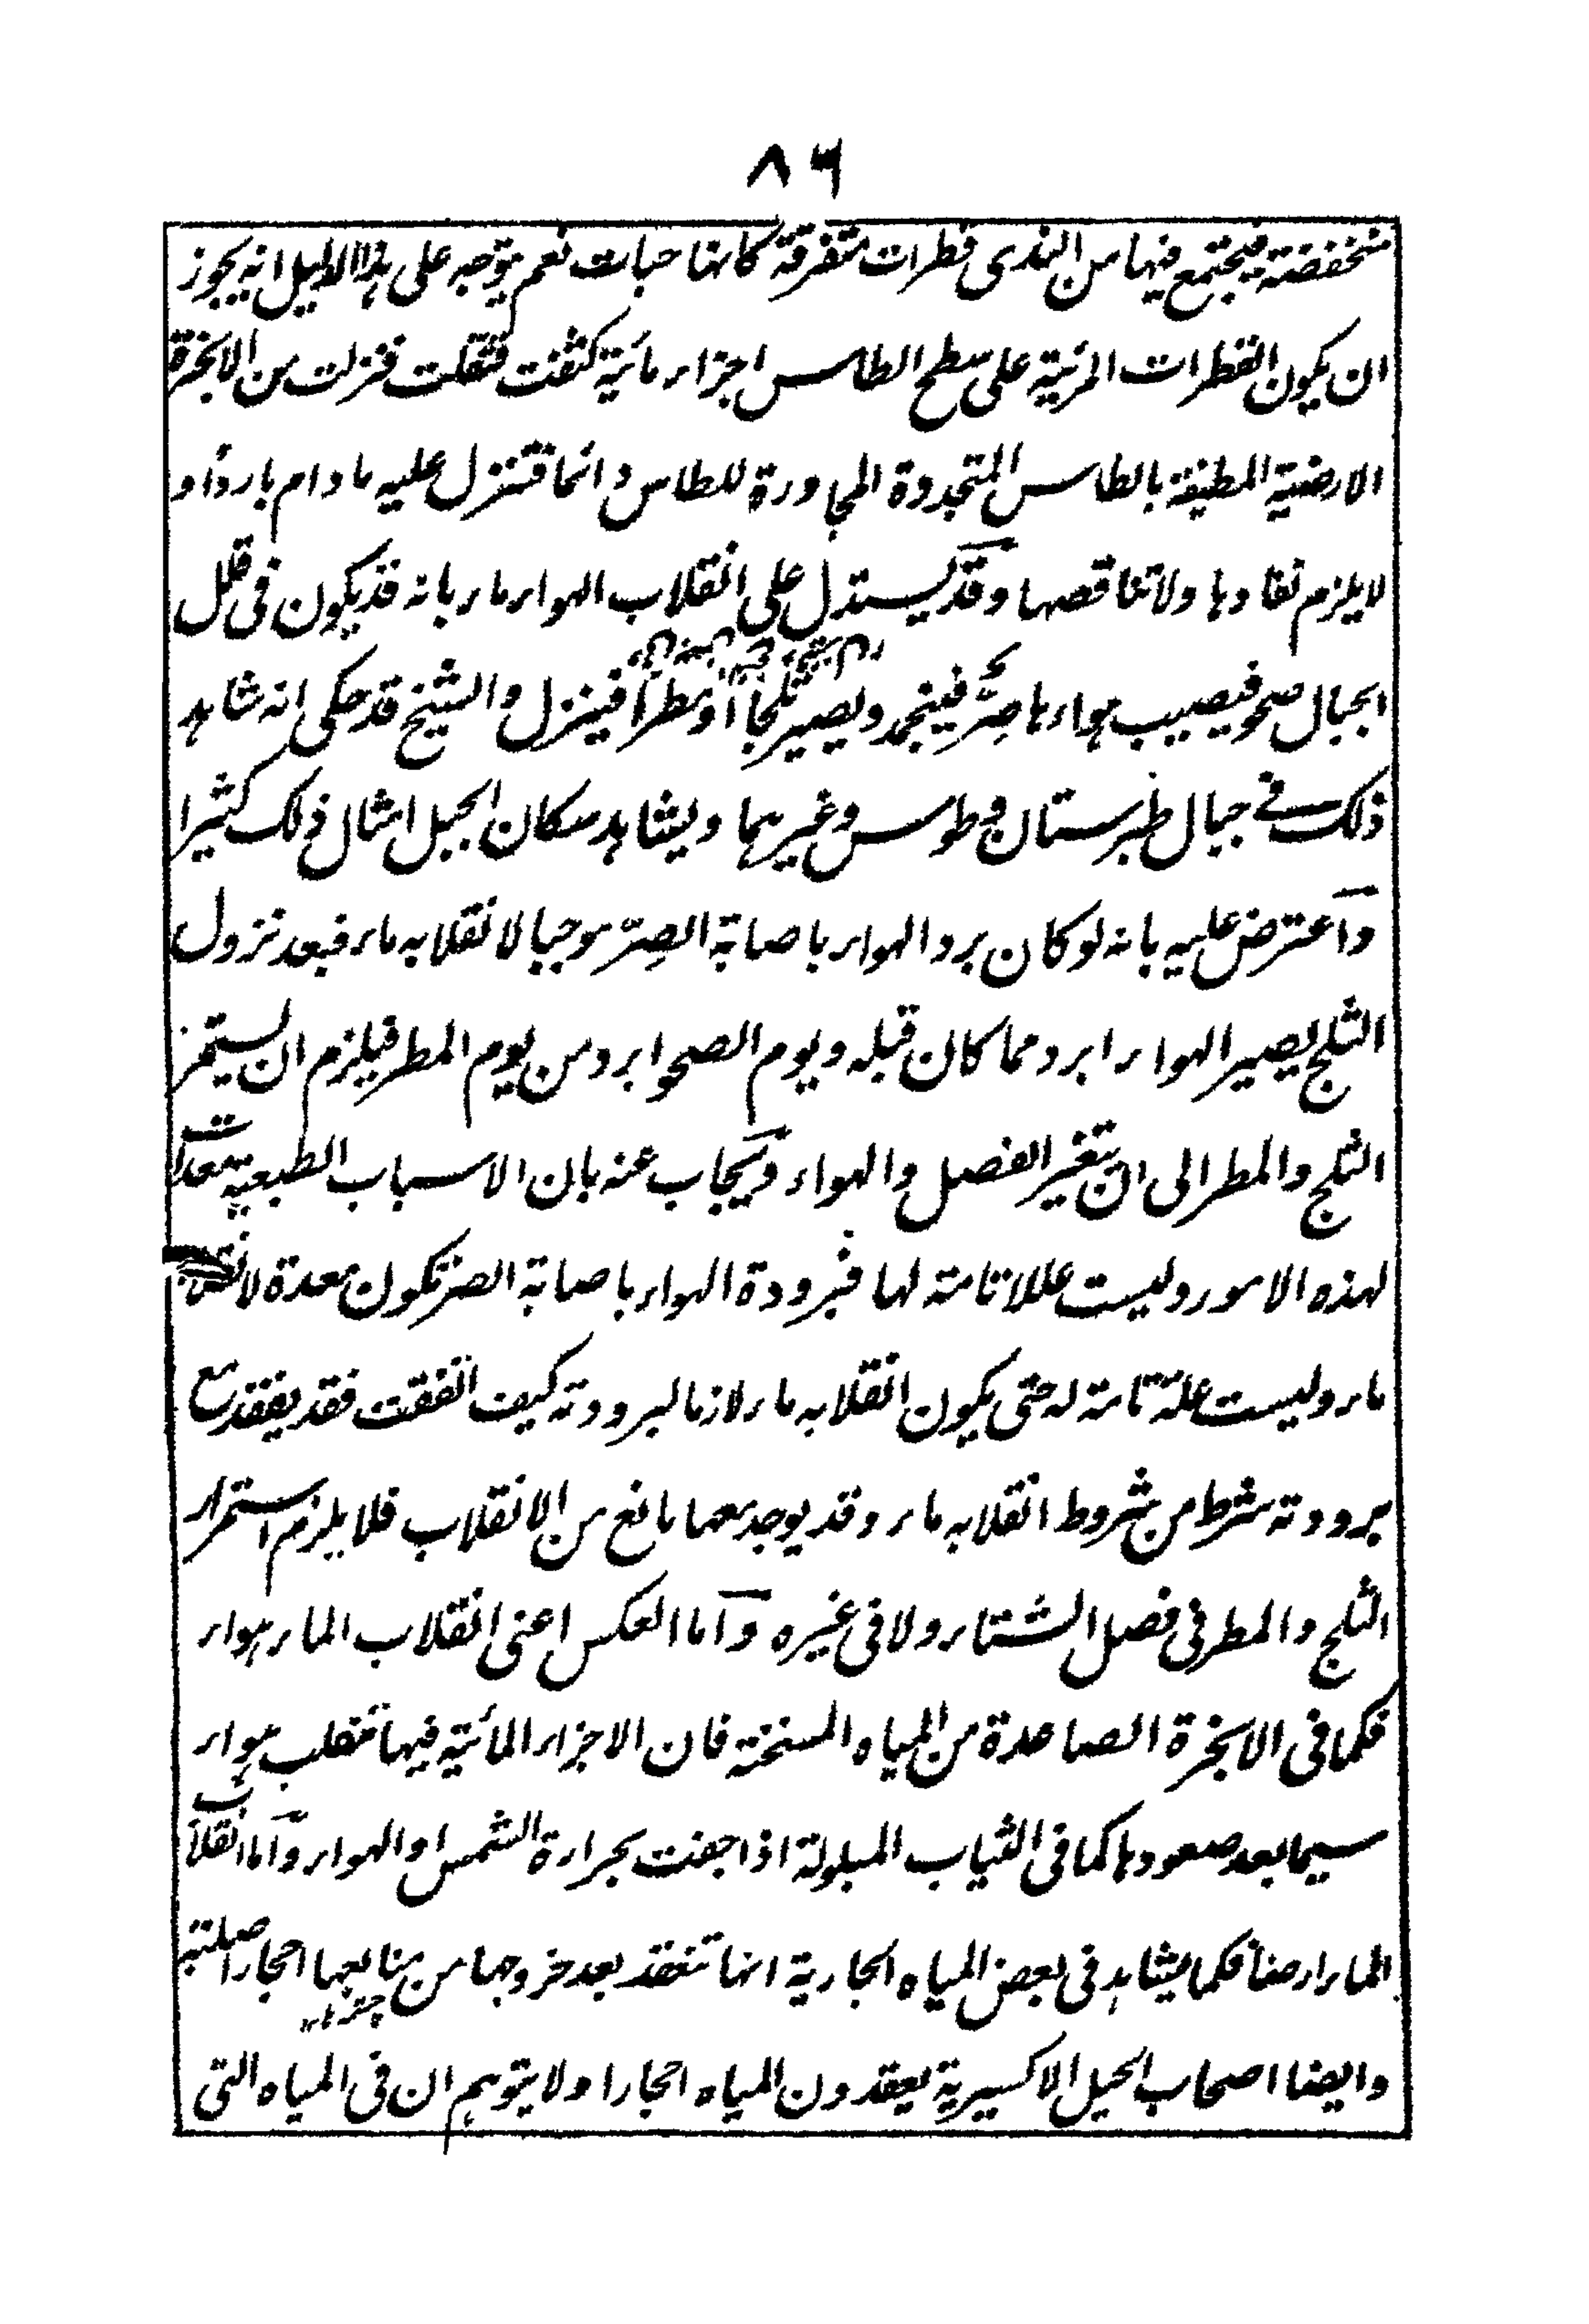 ٨٦
منخفضة فيجتمع فيها من الندى قطرات متفرقة كانها حبات نعم يتوجه على هذا الدليل انه يجوز
ان يكون القطرات المرئية على سطح الطاس اجزاء مائية كثفت فثقلت فنزلت من الابخرة
الارضية المطيفة بالطاس المتجددة المجاورة للطاس دائما فتنزل عليه ما دام باردا و
لا يلزم نفادها ولا تناقصها وقد يستدل على انقلاب الهواء ماء بانه قد يكون فى قلل
الجبال صحو فيصيب هواءها صرّ فينجمد ويصير ثلجا او مطرا فينزل والشيخ قد حكى انه شاهد
ذلك فى جبال طبرستان وطوس وغيرهما ويشاهد سكان الجبل امثال ذلك كثيرا
واعترض عليه بانه لو كان برد الهواء باصابة الصِرّ موجبا لانقلابه ماء فبعد نزول
الثلج يصير الهواء ابرد مما كان قبله ويوم الصحو ابرد من يوم المطر فيلزم ان يستمر
الثلج والمطر الى ان يتغير الفصل والهواء ويجاب عنه بان الاسباب الطبعية معدات
لهذه الامور وليست عللا تامة لها فبرودة الهواء باصابة الصر تكون معدة لانقلابه
ماء وليست علة تامة له حتى يكون انقلابه ماء لازما لبرودته كيف اتفقت فقد يفقد مع
برودته شرط من شروط انقلابه ماء وقد يوجد معها مانع من الانقلاب فلا يلزم استمرار
الثلج والمطر فى فصل الشتاء ولا فى غيره واما العكس اعنى انقلاب الماء هواء
فكما فى الابخرة الصاعدة من المياه المسخنة فان الاجزاء المائية فيها تنقلب هواء
سيما بعد صعودها كما فى الثياب المبلولة اذا جفت بحرارة الشمس او الهواء واما انقلاب
الماء ارضا فكما يشاهد فى بعض المياه الجارية انها تنعقد بعد خروجها من منابعها احجارا صلبة
وايضا اصحاب الحيل الاكسيرية يعقدون المياه احجارا ولا يتوهم ان فى المياه التى